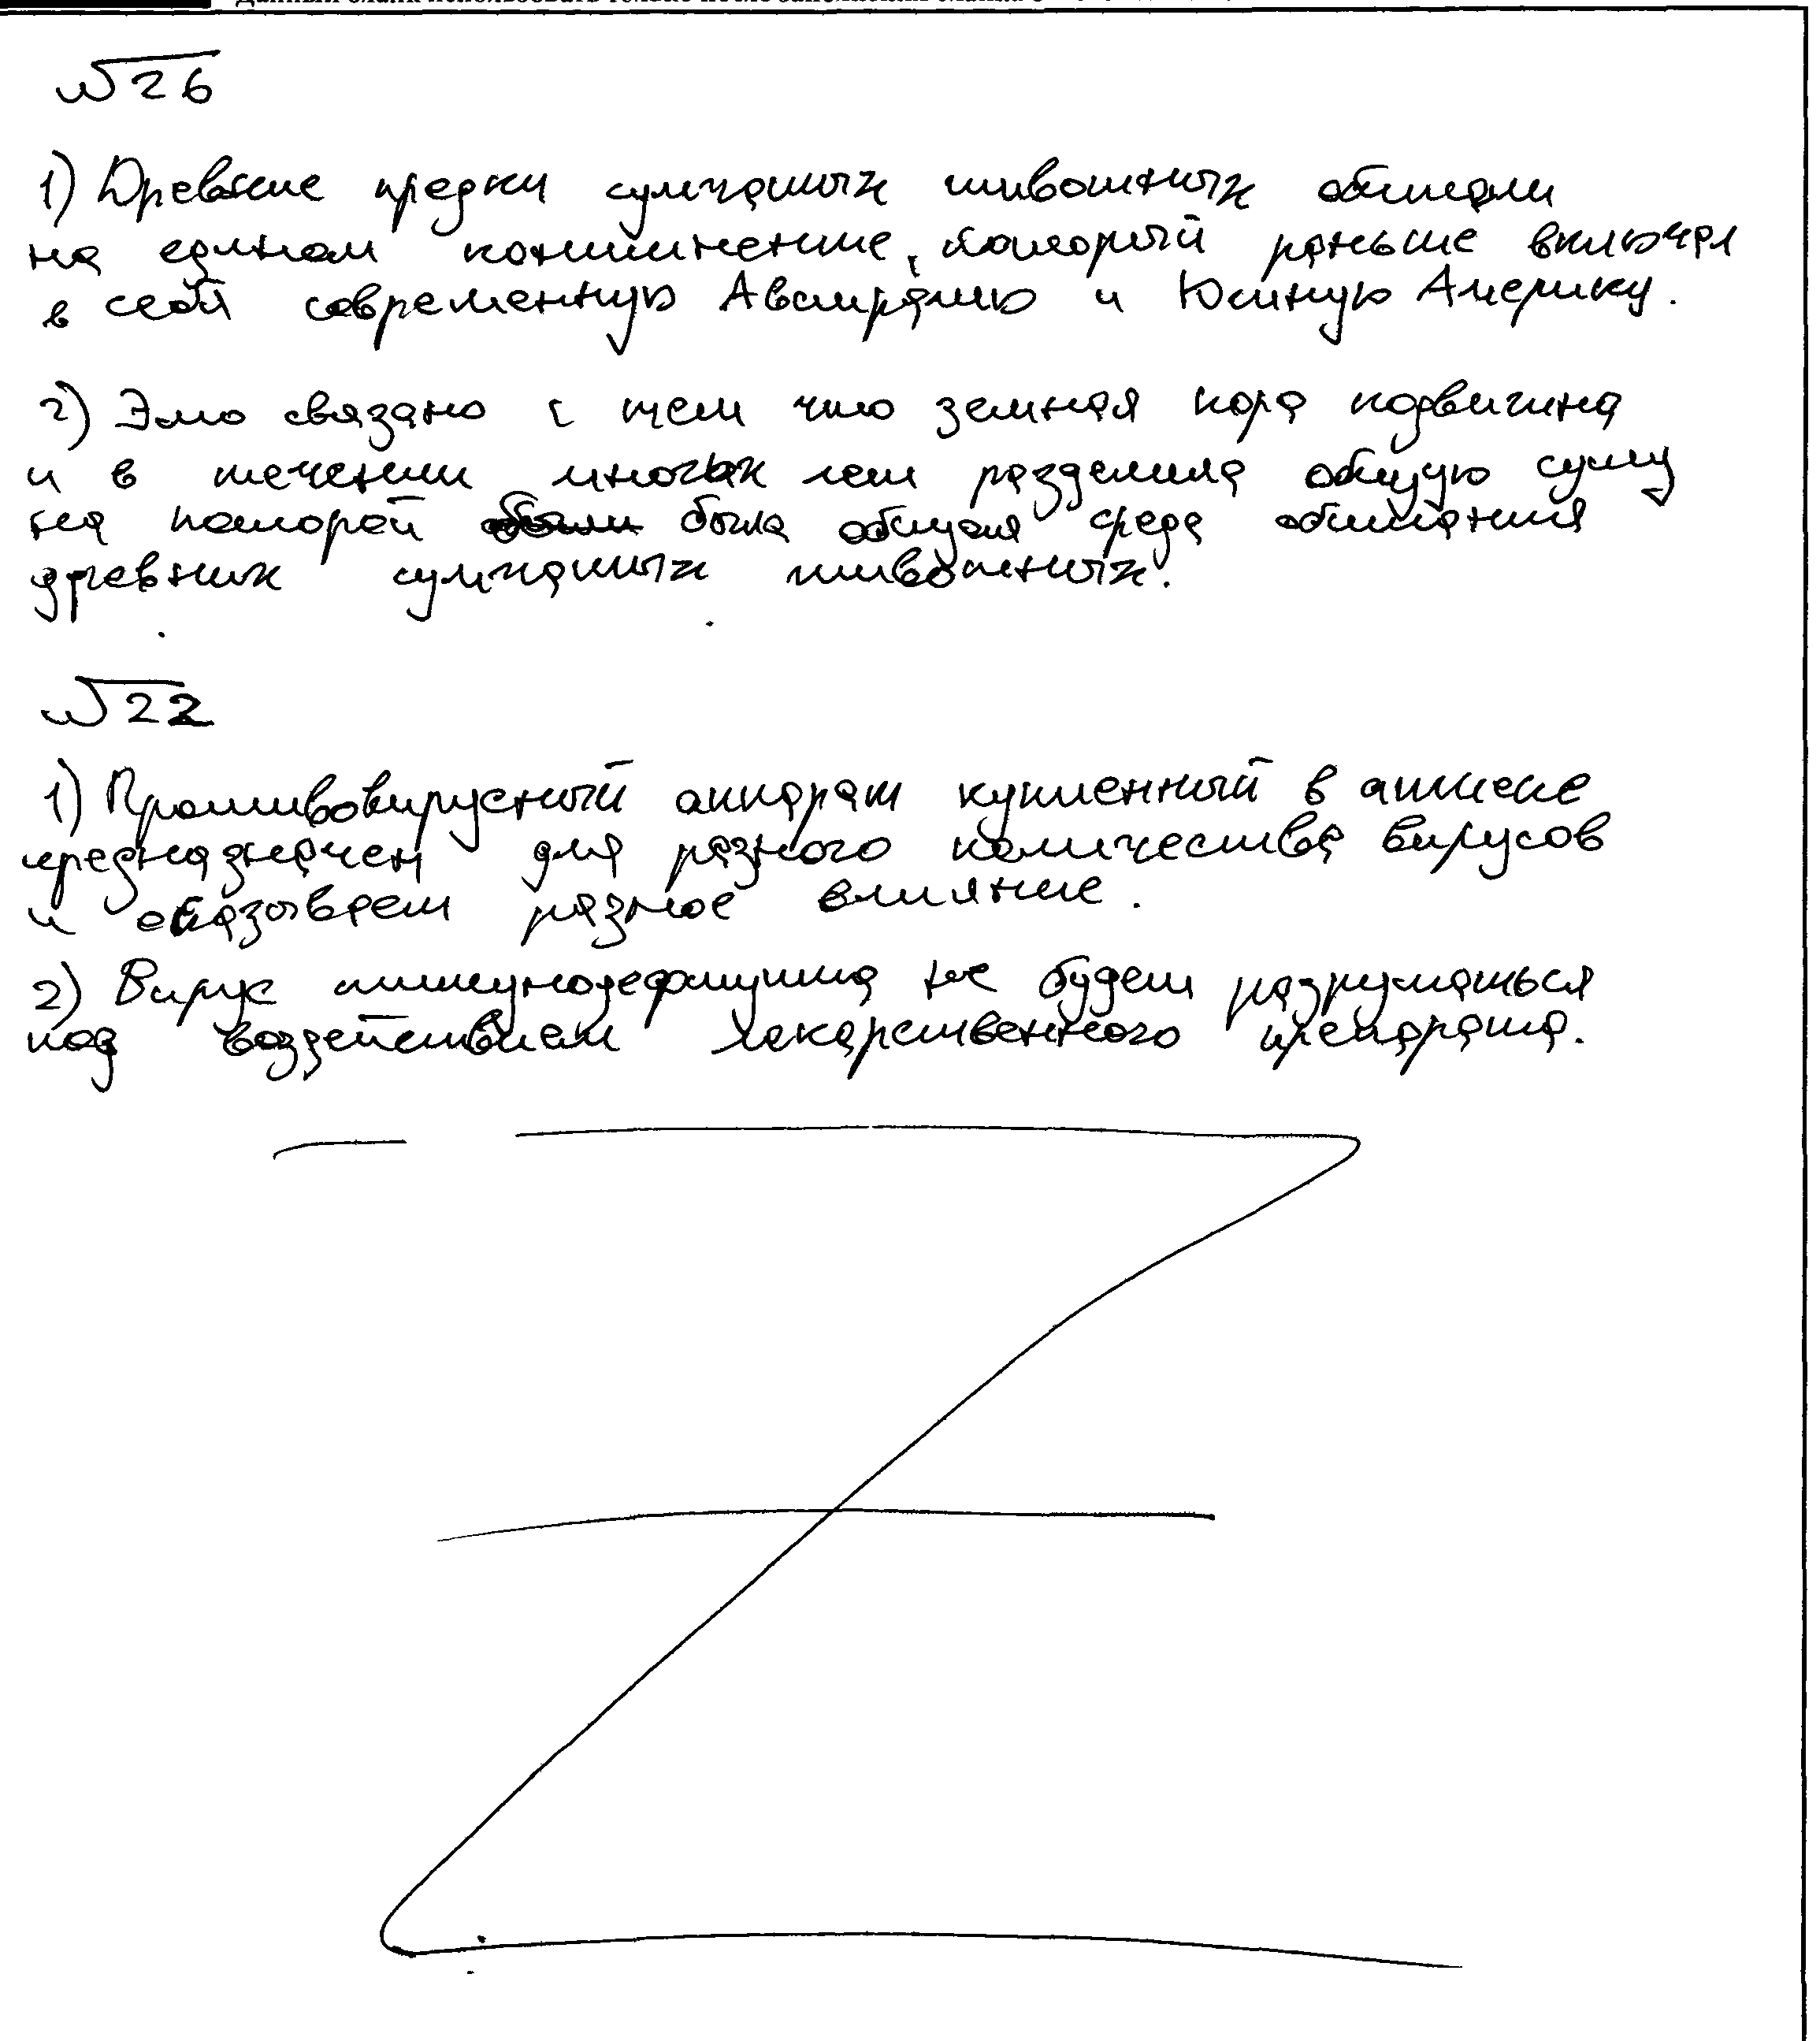 №26
1) Древние предки сумчатых животных обитали
на едином континенте, который раньше включал
в себя современную Австралию и Южную Америку.
2) Это связано с тем что земная кора подвижна
и в течении многих лет разделила общую сушу
на которой была общая среда обитания
древних сумчатых животных.
№22
1) Противовирусный аппарат купленный в аптеке
предназначен для разного количества вирусов
и оказывает разное влияние.
2) Вирус иммунодефицита не будет разрушаться
под воздействием лекарственного препарата.